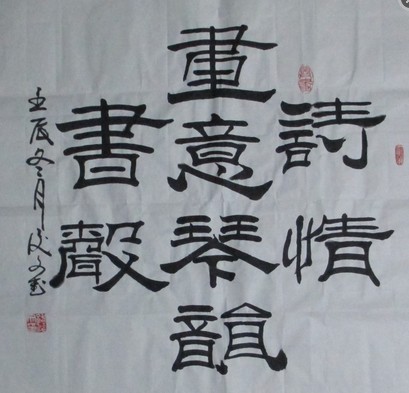 詩情
畫意琴韻
書聲
壬辰冬月